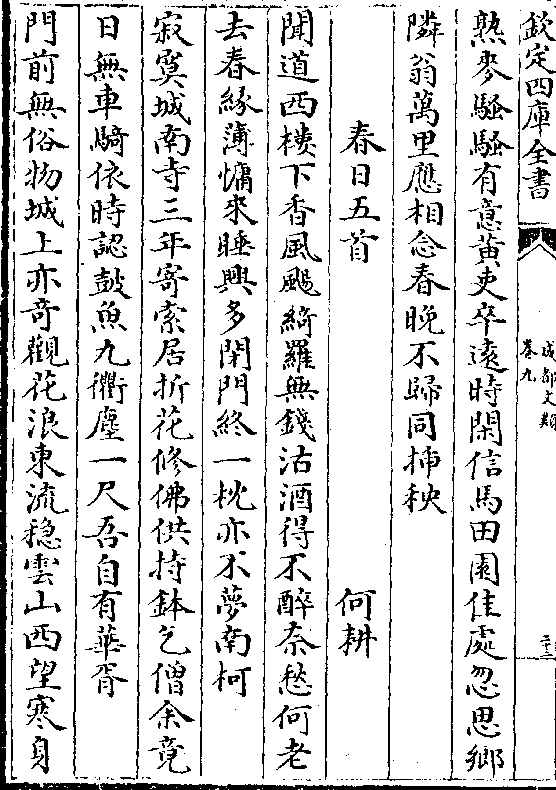 欽定四庫全書
成都文類
卷九
二十三
熟麥騷騷有意黃吏卒遠時閑信馬田園佳處忽思鄉
隣翁萬里應相念春晚不歸同揷秧
春日五首 何耕
聞道西樓下香風颺綺羅無錢沽酒得不醉奈愁何老
去春緣薄慵來睡興多閉門終一枕亦不夢南柯
寂寞城南寺三年寄索居折花修佛供持鉢乞僧余竟
日無車騎依時認鼓魚九衢塵一尺吾自有華胥
門前無俗物城上亦奇觀花浪東流穏雲山西望寒身